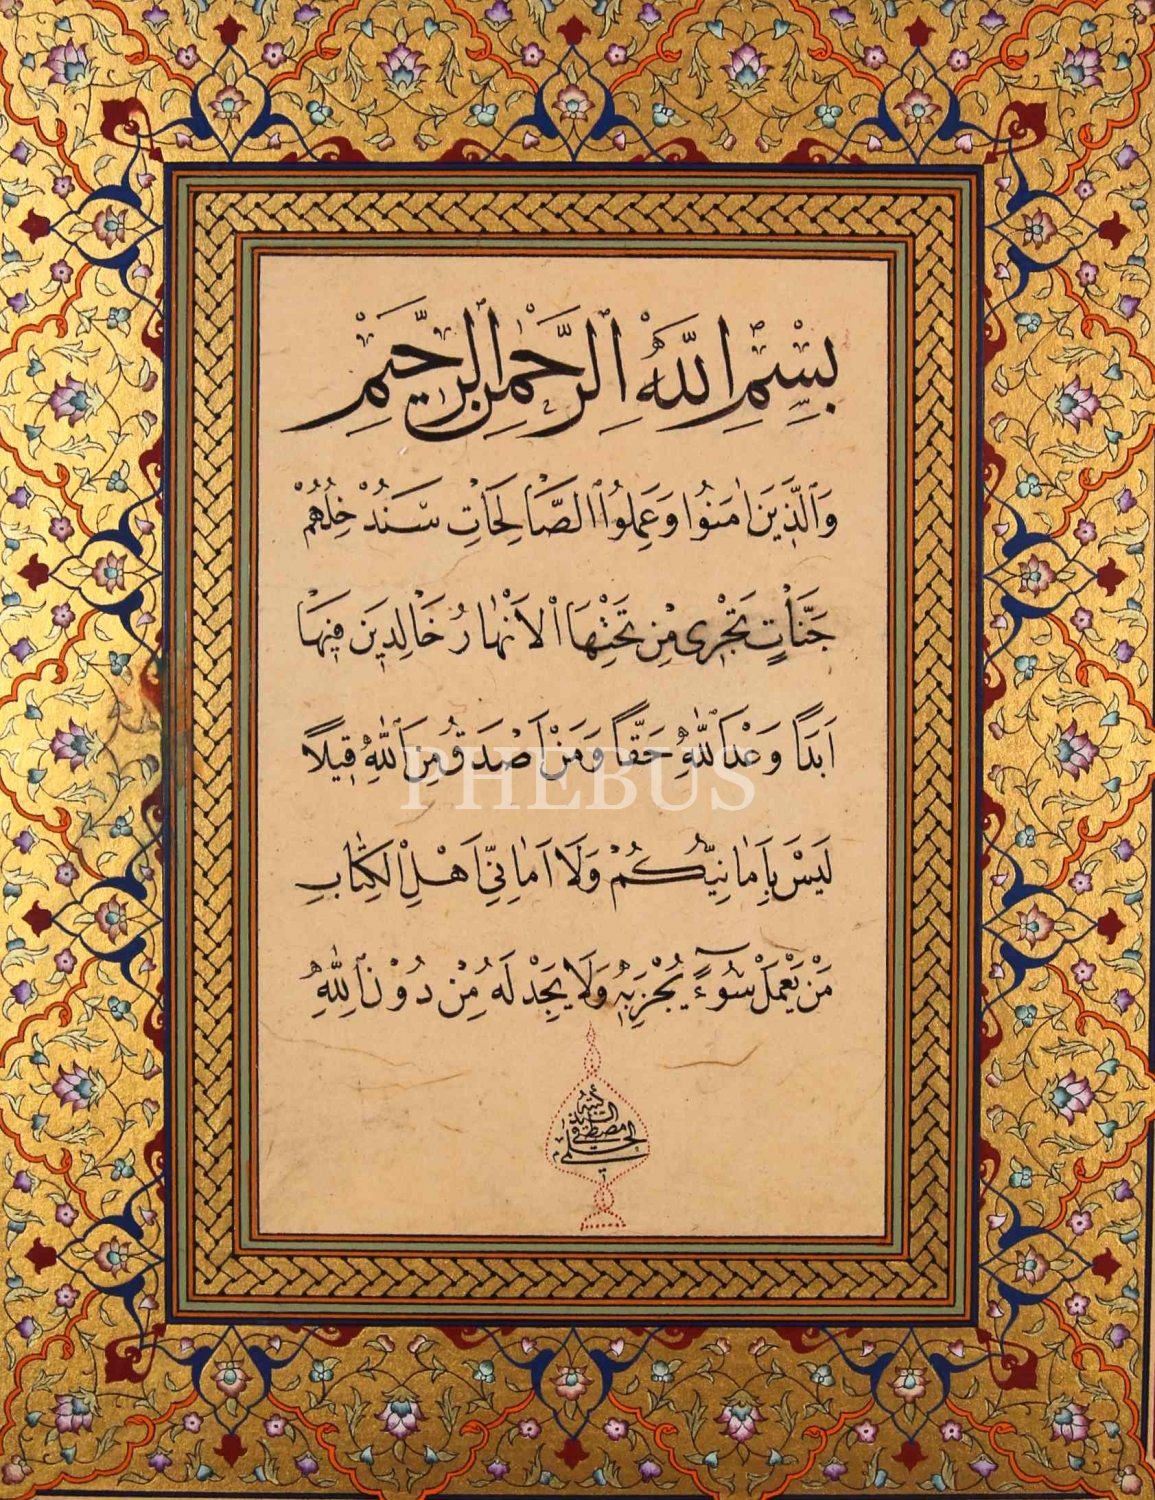 بِسْمِ اللَّهِ الرَّحْمٰنِ الرَّحِيمِ
وَالَّذِينَ اٰمَنُوا وَعَمِلُوا الصَّالِحَاتِ سَنُدْخِلُهُمْ
جَنَّاتٍ تَجْرِى مِنْ تَحْتِهَا الْاَنْهَارُ خَالِدِينَ فِيهَا
اَبَدًا وَعْدَ اللّٰهِ حَقًّا وَمَنْ اَصْدَقُ مِنَ اللّٰهِ قِيلًا
PHEBUS
لَيْسَ بِاَمَانِيِّكُمْ وَلَا اَمَانِىِّ اَهْلِ الْكِتَابِ
مَنْ يَعْمَلْ سُوءً يُجْزَ بِهِ وَلَا يَجِدْ لَهُ مِنْ دُونِ اللّٰهِ
كتبه
السيد
مصطفى
الحلمى